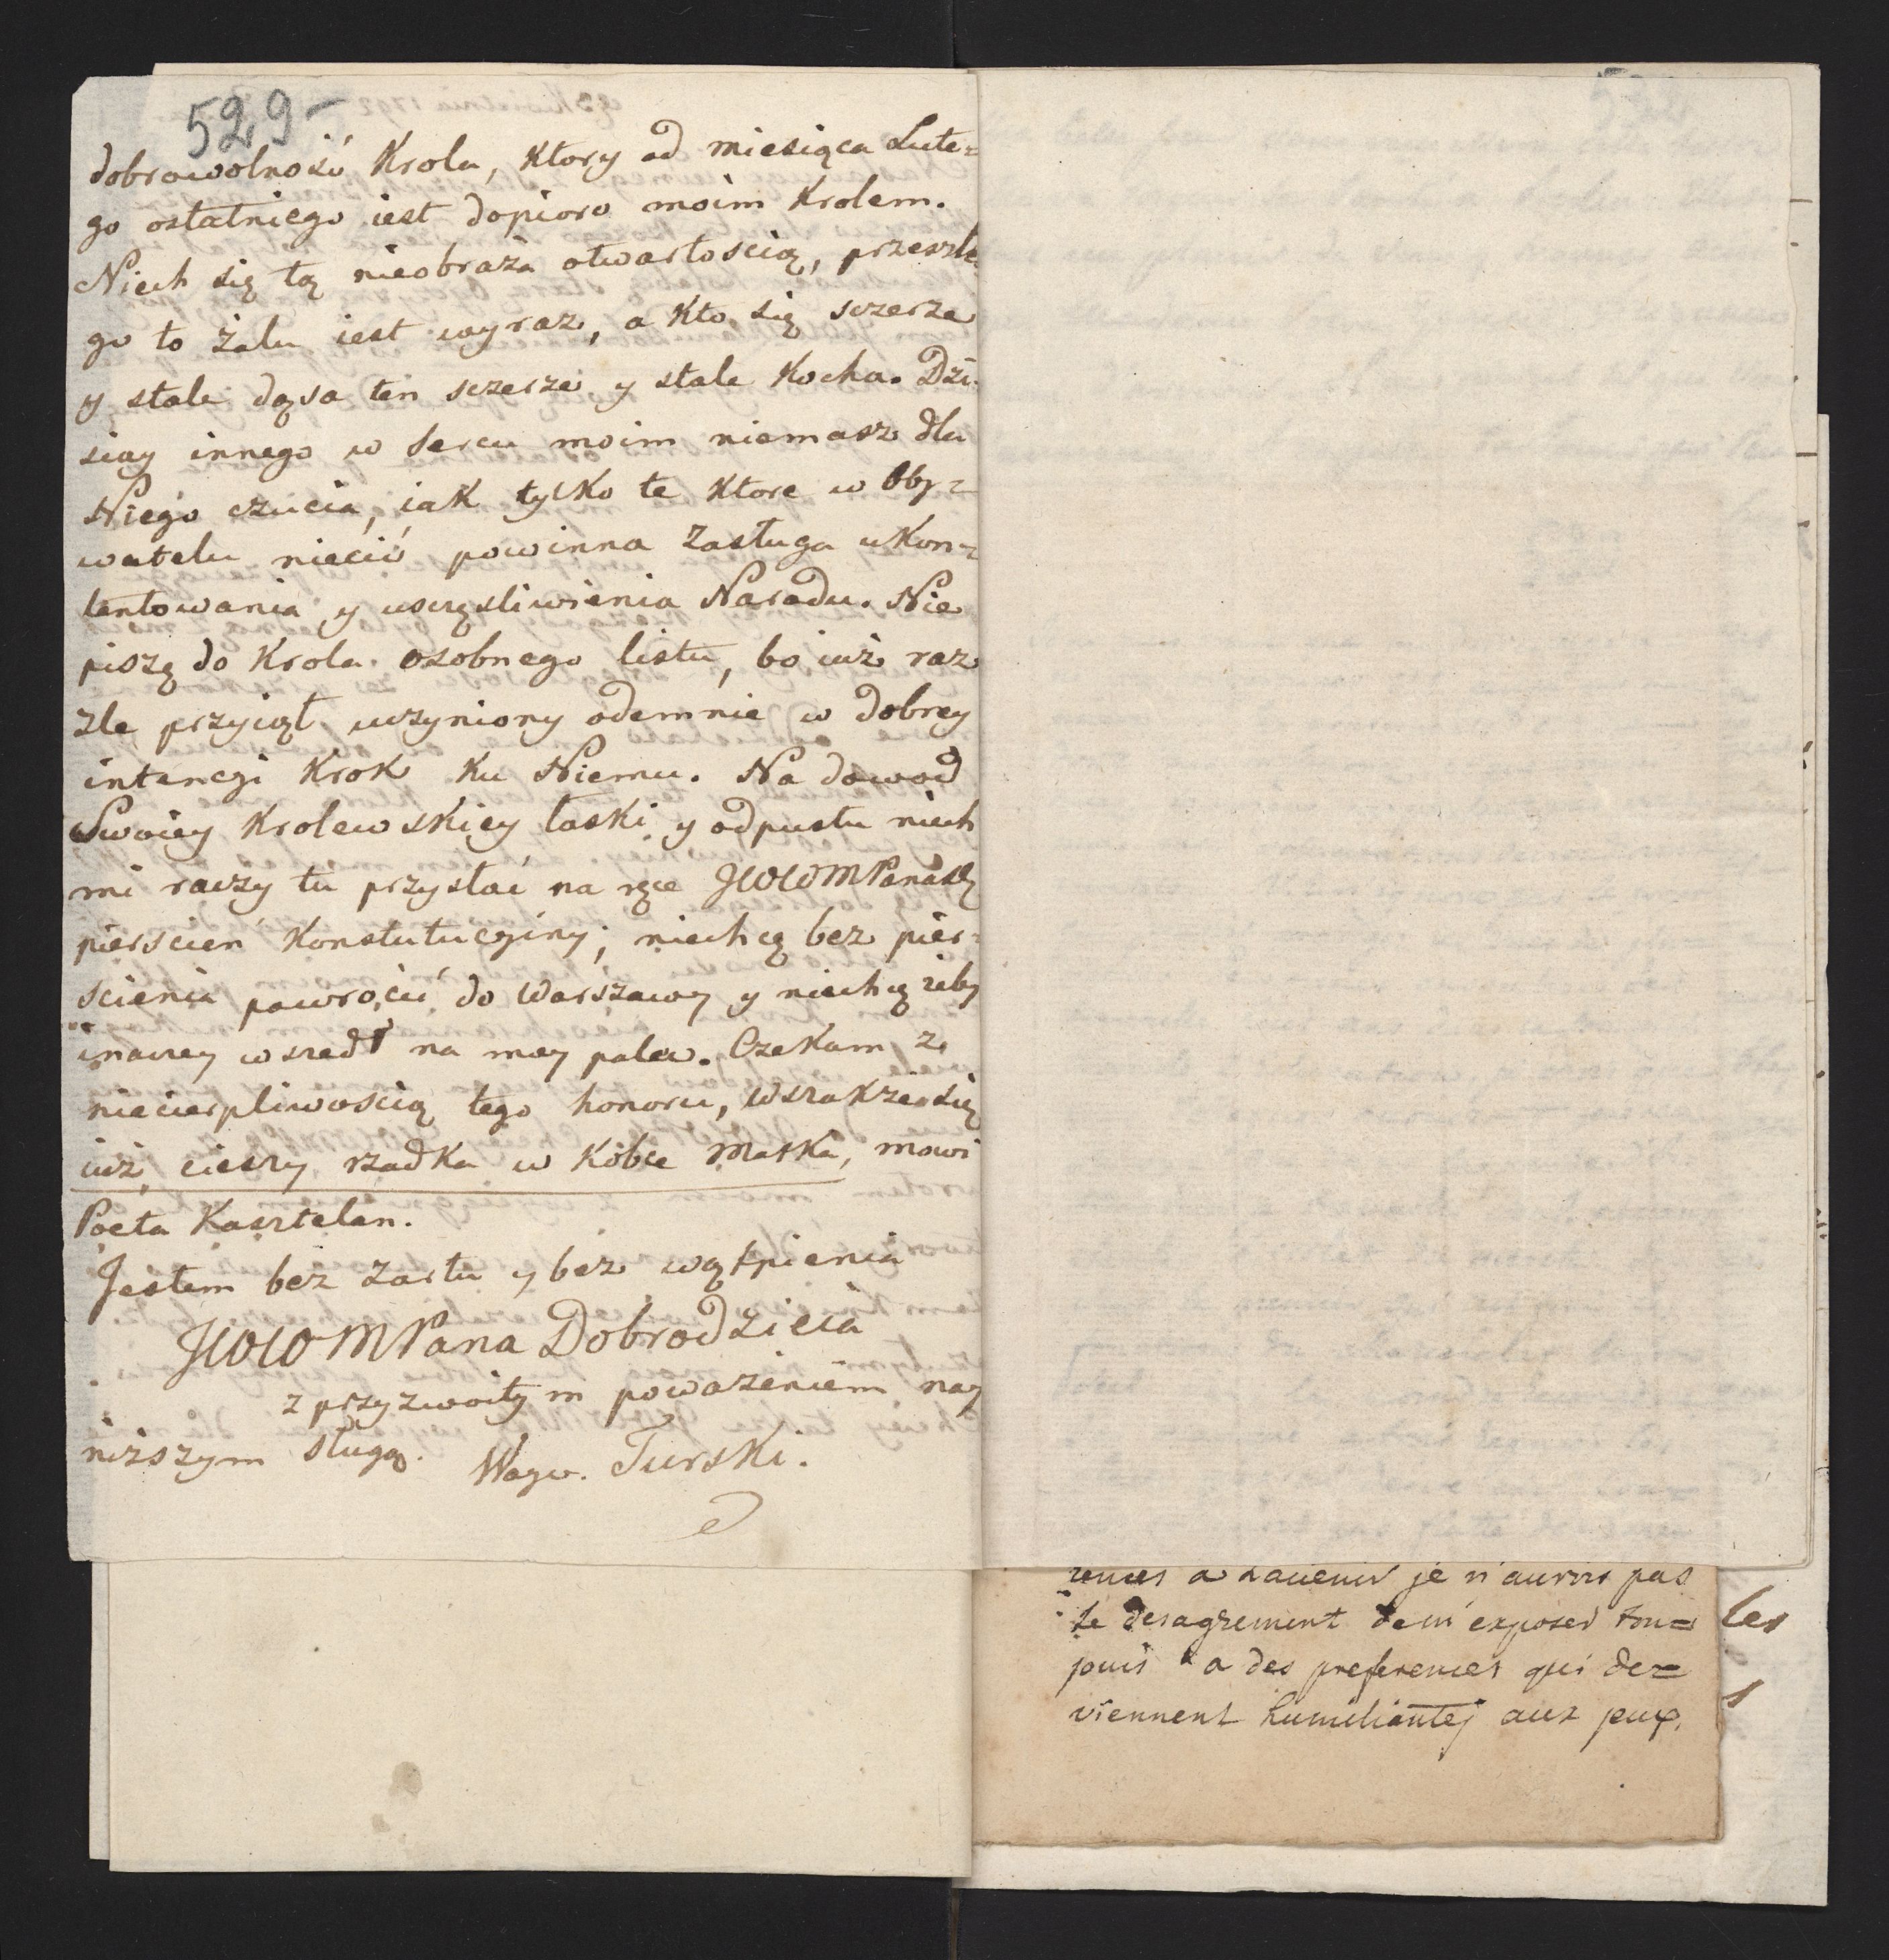 529
dobrowolność Krola, Ktory od miesiąca Lute=
go ostatniego iest dopioro moim Krolem.
Niech się tą nieobraża otwartoscią, przeszłe=
go to żalu iest wyraz, a Kto się sczerze
y stale dąsa ten sczerze y stale Kocha. Dzi=
siay innego w sercu moim niemasz dla
Niego czucia, iak tylko te Ktore w Oby=
watelu niecić powinna Zasługa uKon=
tentowania y uszczęsliwienia Narodu. Nie
piszę do Krola osobnego listu, bo iuż raz
zle przyiął uczyniony odemnie w dobrey
intencyi KroK Ku Niemu. Na dowod
Swoiey Krolewskiey łaski y odpustu niech
mi raczy tu przysłać na ręce JWWMPana
pierscień Konstytucyiny; niechcę bez pier=
scienia powrocić do Warszawy y niechcę żeby
inaczey wszedł na moy palec. CzeKam z
niecierpliwoscią tego honoru, WszaKże się
iuż cieszy rzadKa w Kobce MasKa, mowi
Poeta Kasztelan.
Jestem bez żartu y bez wątpienia
JWWMPana Dobrodzieia
z przyzwoitym poważeniem nay
niższym sługą. Woyw. TursKi.
rences a L'avenir je n'aurois pas
le desagrement de m'exposer tou=
jours a des preferences qui de=
viennent humiliantes aux
les
s